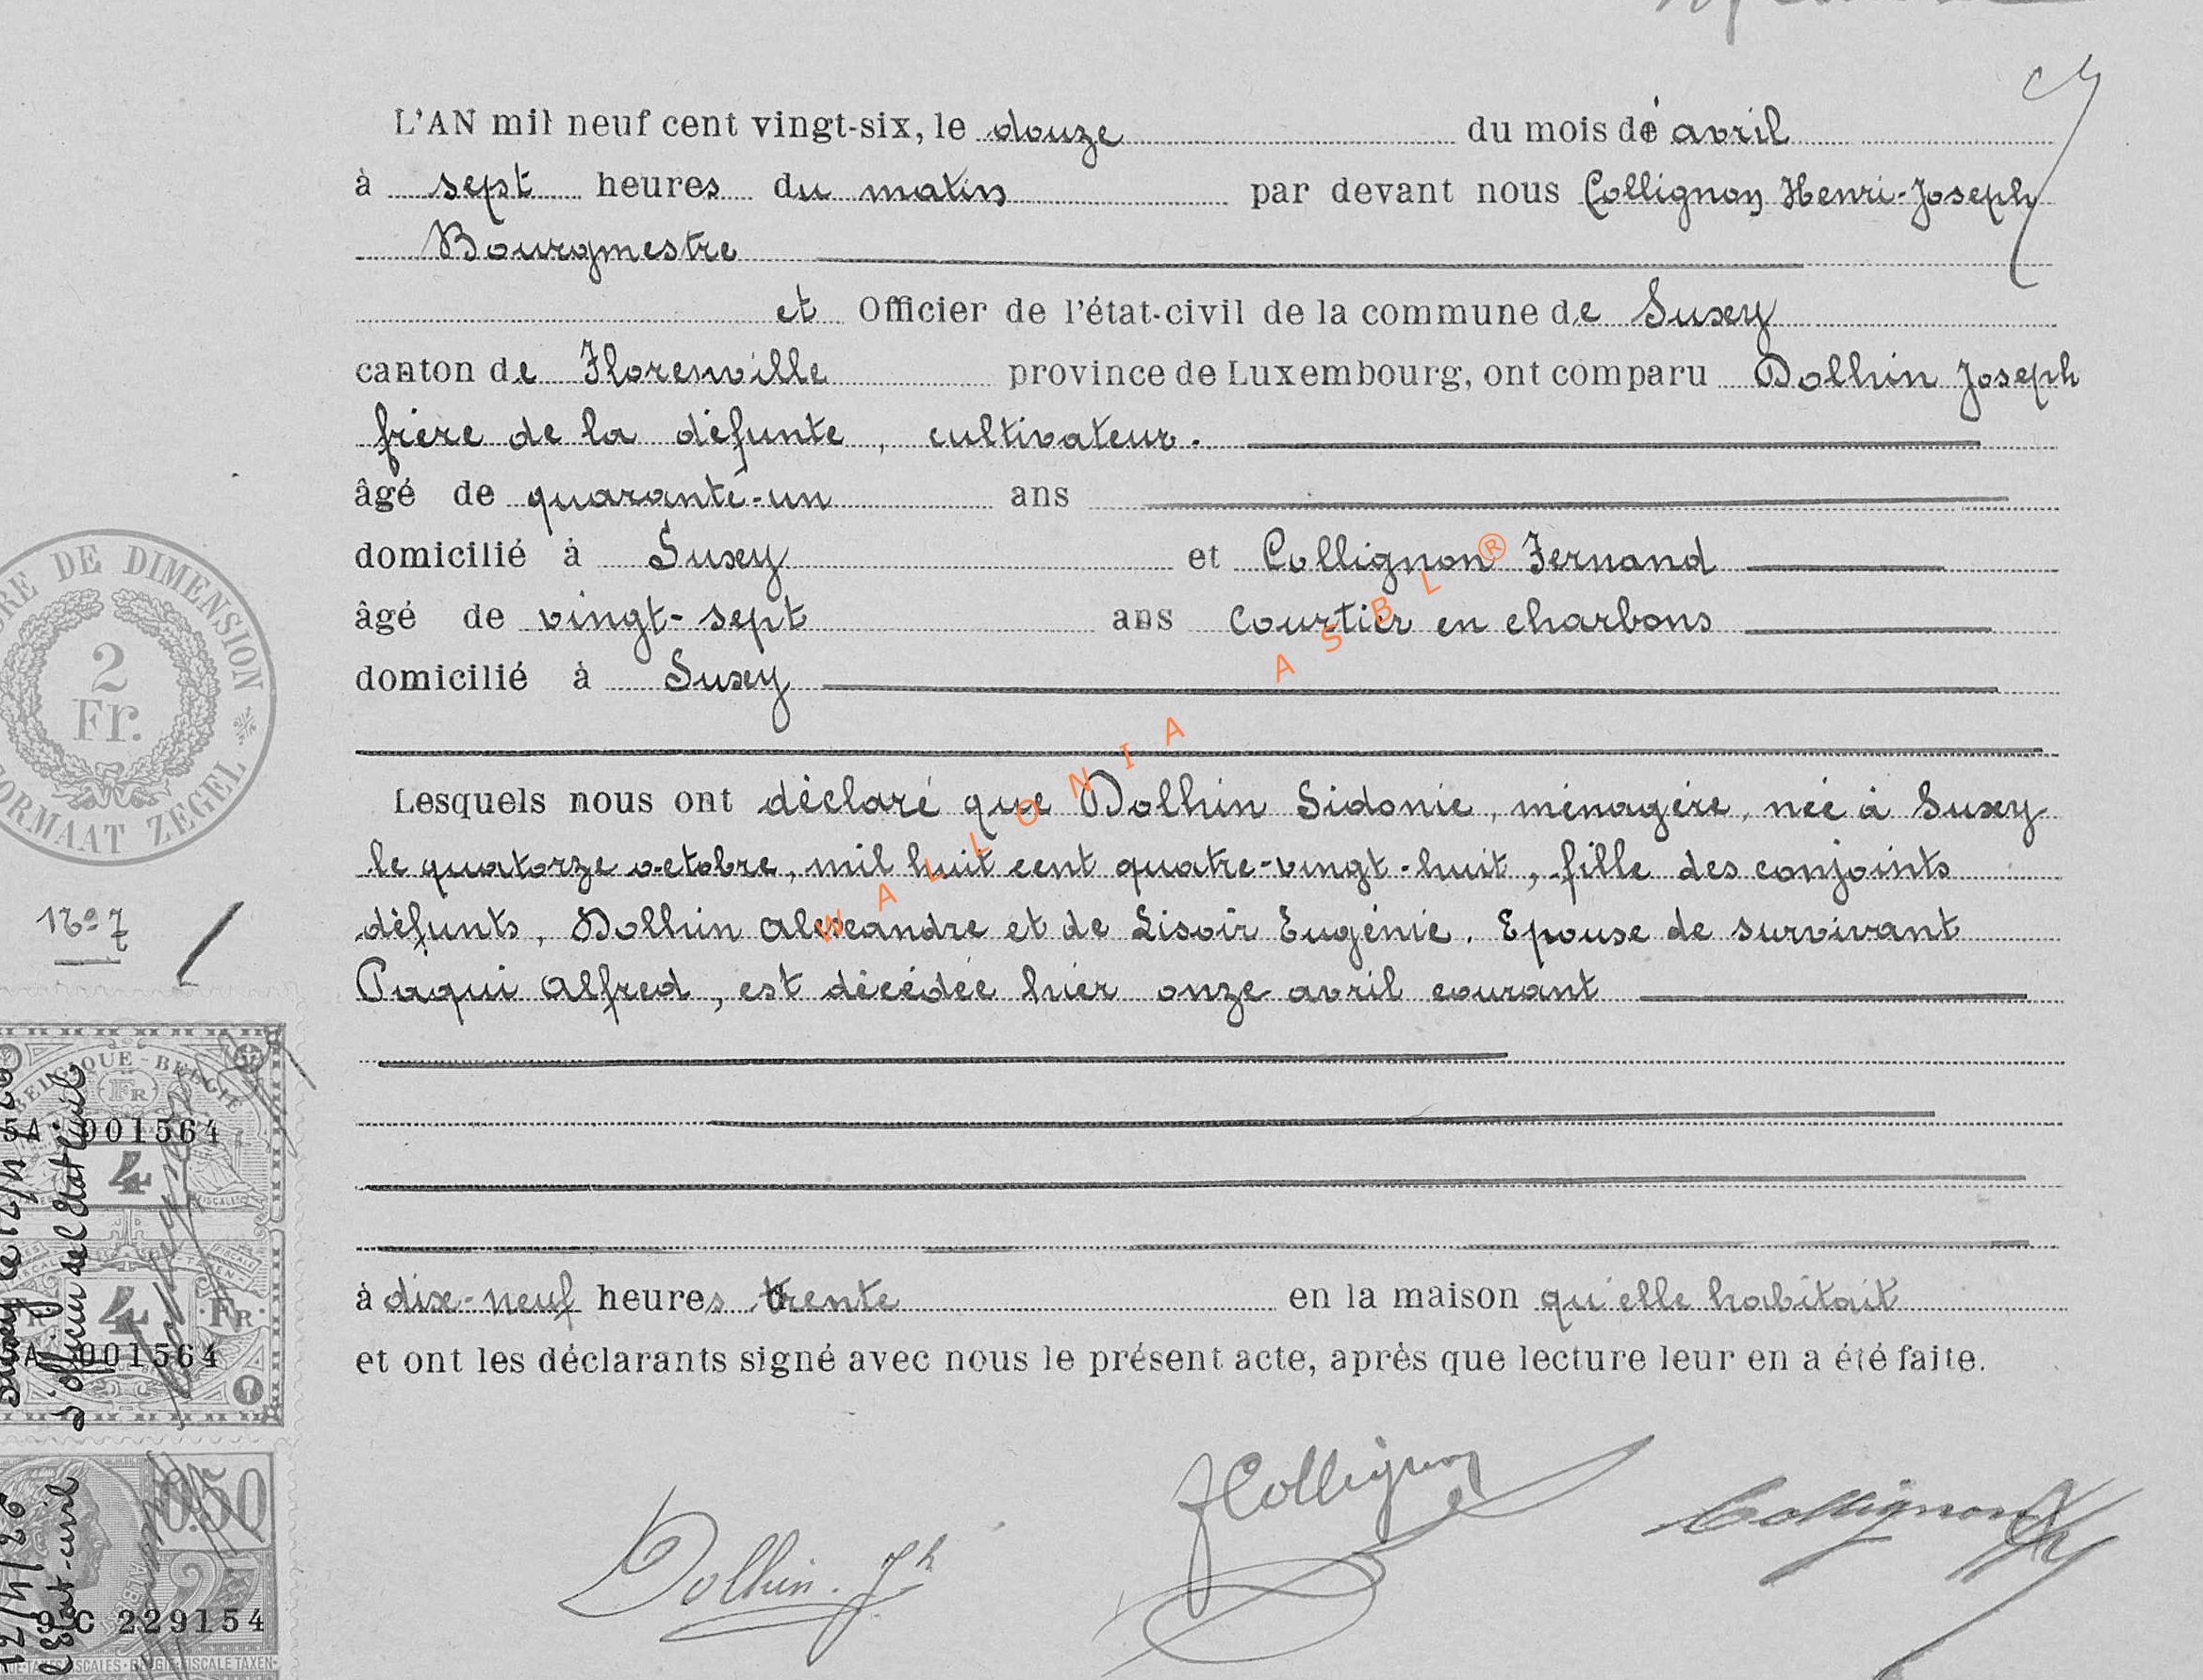 L'AN mil neuf cent vingt-six, le douze du mois de avril
à sept heures du matin par devant nous Collignon Henri-Joseph
Bourgmestre
et Officier de l'état-civil de la commune de Suxy
canton de Florenville province de Luxembourg, ont comparu Dolhin Joseph
frère de la défunte, cultivateur.
âgé de quarante-un ans
domicilié à Suxy et Collignon Fernand
âgé de vingt-sept ans Courtier en charbons
domicilié à Suxy
Lesquels nous ont déclaré que Dolhin Sidonie, ménagère, née à Suxy
le quatorze octobre, mil huit cent quatre-vingt-huit, fille des conjoints
défunts, Dolhin Alexandre et de Lisoir Eugénie. Epouse de survivant
Paqui Alfred, est décédée hier onze avril courant
à dix-neuf heures trente en la maison qu'elle habitait
et ont les déclarants signé avec nous le présent acte, après que lecture leur en a été faite.
Dolhin. Jh
JCollignon
Collignon
WALLONIA ASBL ®
DE DIMENSION
2
Fr.
FORMAAT ZEGEL
No 7
BELGIQUE - BELGIË
FR
5A 001564
4
4
FR
5A 001564
0.50
9C 229154
Suxy le 12/4/26
L'officier de l'état civil
12/4/26
l'état-civil